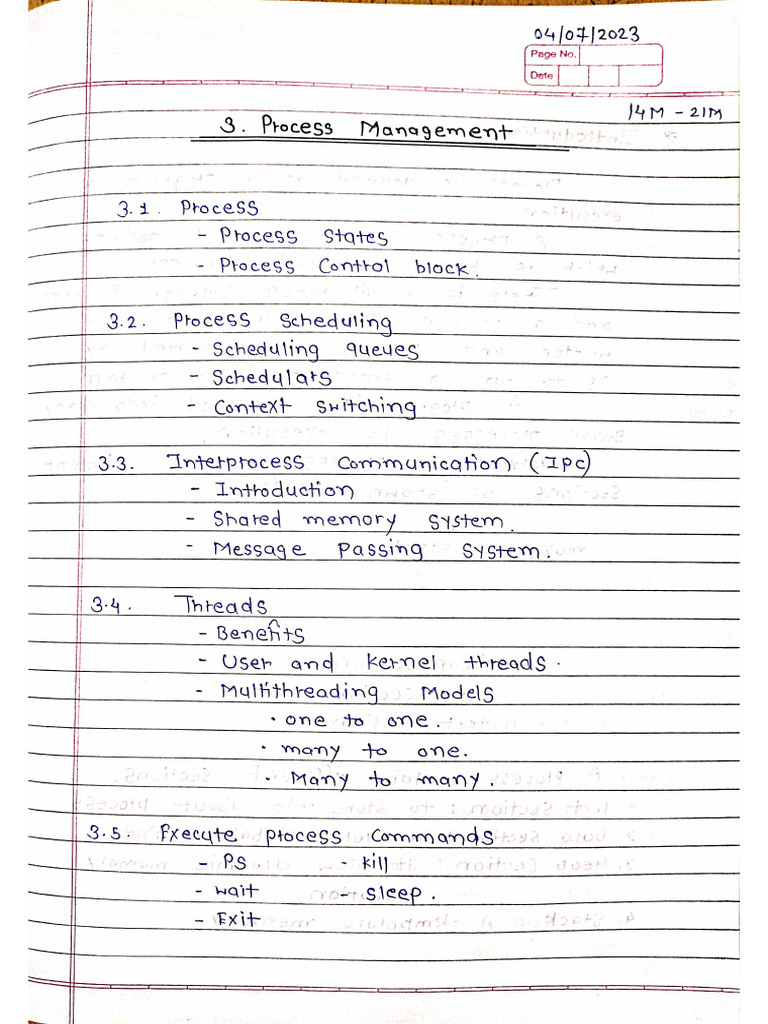 04/07/2023
Page No.
Date
14M - 21M
3. Process Management
3.1. Process
- Process States
- Process Control block.
3.2. Process Scheduling
- Scheduling queues
- Schedulars
- Context switching.
3.3. Interprocess Communication (IPC)
- Introduction
- Shared memory system.
- Message Passing System.
3.4. Threads
- Benefits
- User and kernel threads.
- Multithreading Models
• one to one.
• many to one.
• Many to many.
3.5. Execute process Commands
- PS - kill
- wait - sleep.
- Exit